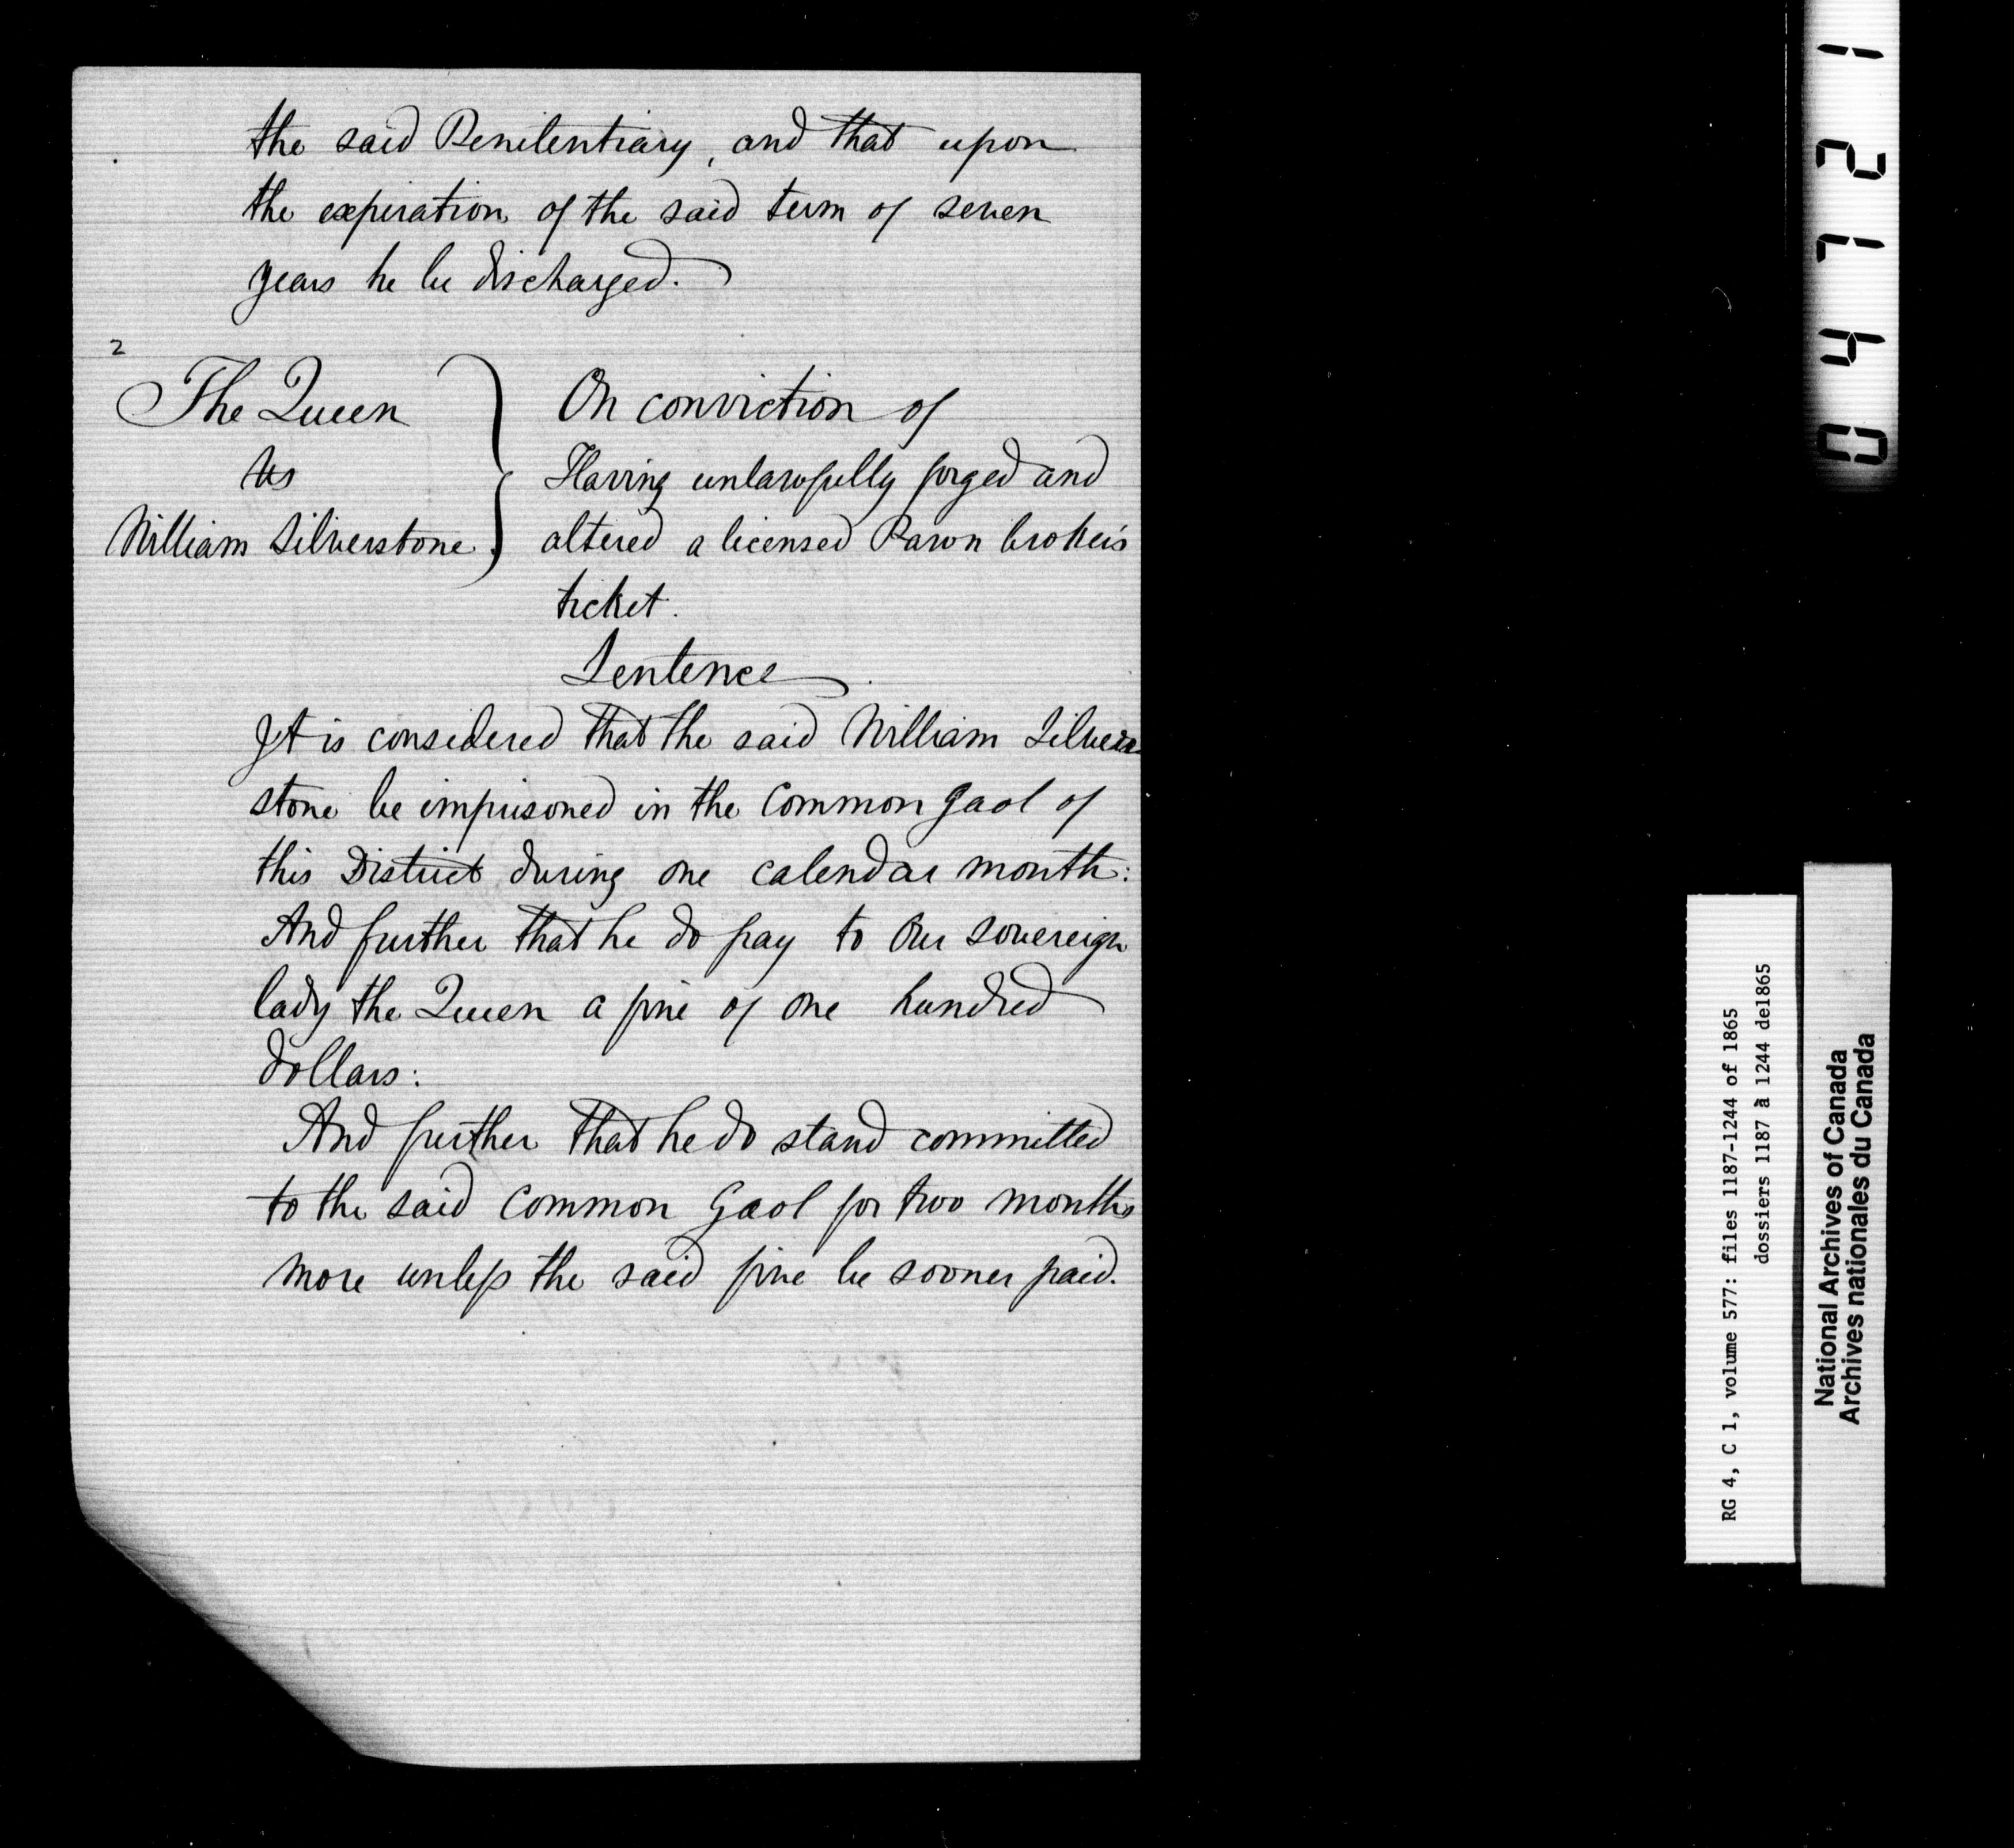 the said Penitentiary, and that upon
the expiration of the said term of seven
years he be discharged.
2
The Queen
vs
William Silverstone.
On conviction of
Having unlawfully forged and
altered a licensed Pawn broker's
ticket.
Sentence.
It is considered that the said William Silver
stone be imprisoned in the Common Gaol of
this District during one calendar month:
And further that he do pay to Our Sovereign
lady the Queen a fine of one hundred
dollars:
And further that he do stand committed
to the said Common Gaol for two months
more unless the said fine be sooner paid.
04721
RG 4, C 1, volume 577: files 1187-1244 of 1865
dossiers 1187 à 1244 de1865
National Archives of Canada
Archives nationales du Canada